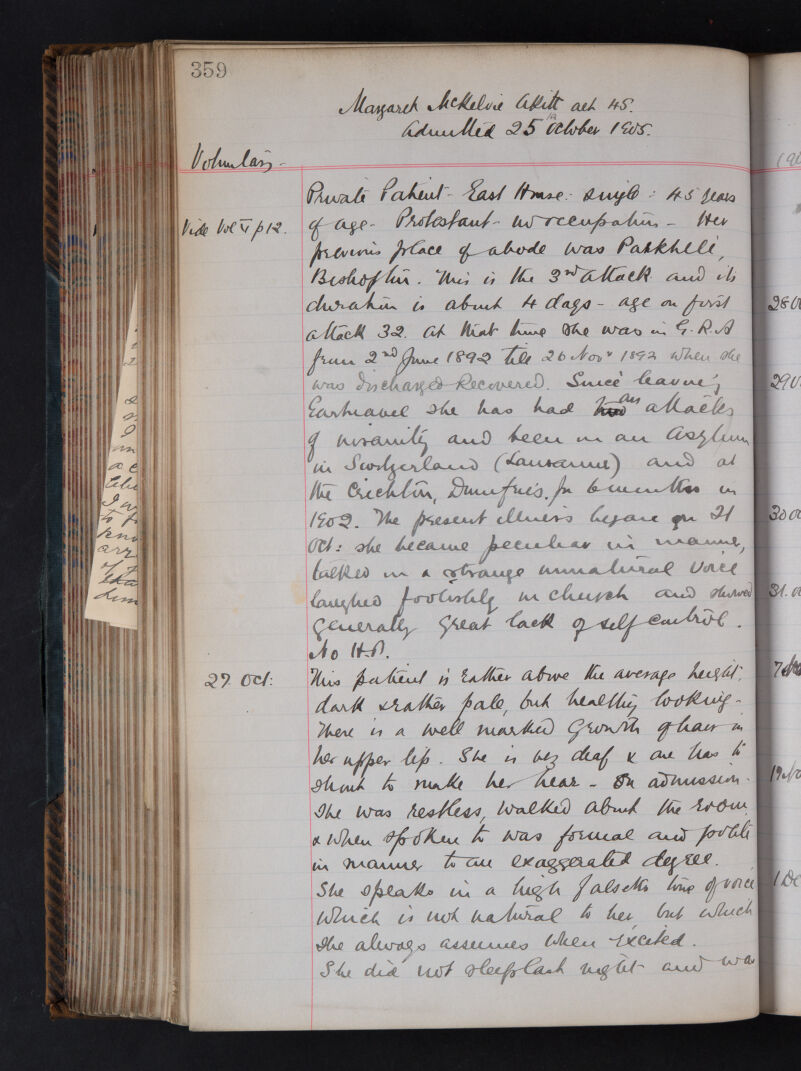 359
Margaret McKelvie Aitt aet 45.
Admitted 25th October 1905.
Voluntary -
Private Patient - East House: single: 45 years
Vide Vol V p 12.
of age - Protestant - no occupation - Her
previous place of abode was Parkhill,
Bishopton. This is the 3rd attack and its
duration is about 4 days - age on first
attack 32. At that time she was in G.R.A
from 2nd June 1892 till 26 Novr 1892 when she
was discharged Recovered. Since leaving
Gartnavel she has had two attacks
of insanity and been in an Asylum
in Switzerland (Lausanne) and at
the Crichton, Dumfries, for 6 months in
1902. The present illness began on 21
Oct: she became peculiar in manner,
talked in a strange unnatural voice
laughed foolishly in church and showed
generally great lack of self control.
No H.P.
27 Oct:
This patient is rather above the average height,
dark & rather pale, but healthy looking -
There is a well marked growth of hair on
her upper lip. She is very deaf & one has to
shout to make her hear - On admission
she was restless, walked about the room
& when spoken to was formal and polite
in manner to an exaggerated degree.
She speaks in a high falsetto tone of voice
which is not natural to her but which
she always assumes when excited.
She did not sleep last night and was